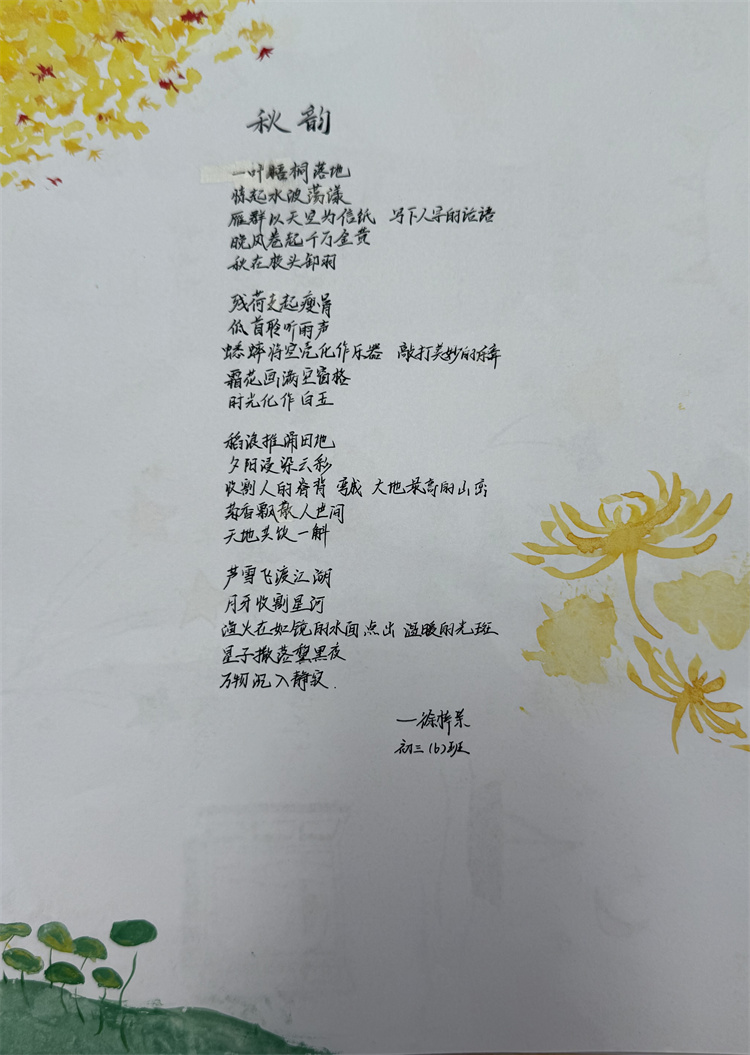 秋韵
一叶梧桐落地
惊起水波荡漾
雁群以天空为信纸 写下人字的话语
晚风卷起千万金黄
秋在枝头卸羽
残荷支起瘦骨
低首聆听雨声
蟋蟀将空壳化作乐器 敲打美妙的乐章
霜花画满空窗格
时光化作白玉
稻浪推涌田地
夕阳浸染云彩
收割人的脊背 弯成 大地最高的山峦
菊香飘散人世间
天地共饮一斛
芦雪飞渡江湖
月牙收割星河
渔火在如镜的水面点出 温暖的光斑
星子撒落整黑夜
万物沉入静寂.
—徐
初三(6)班